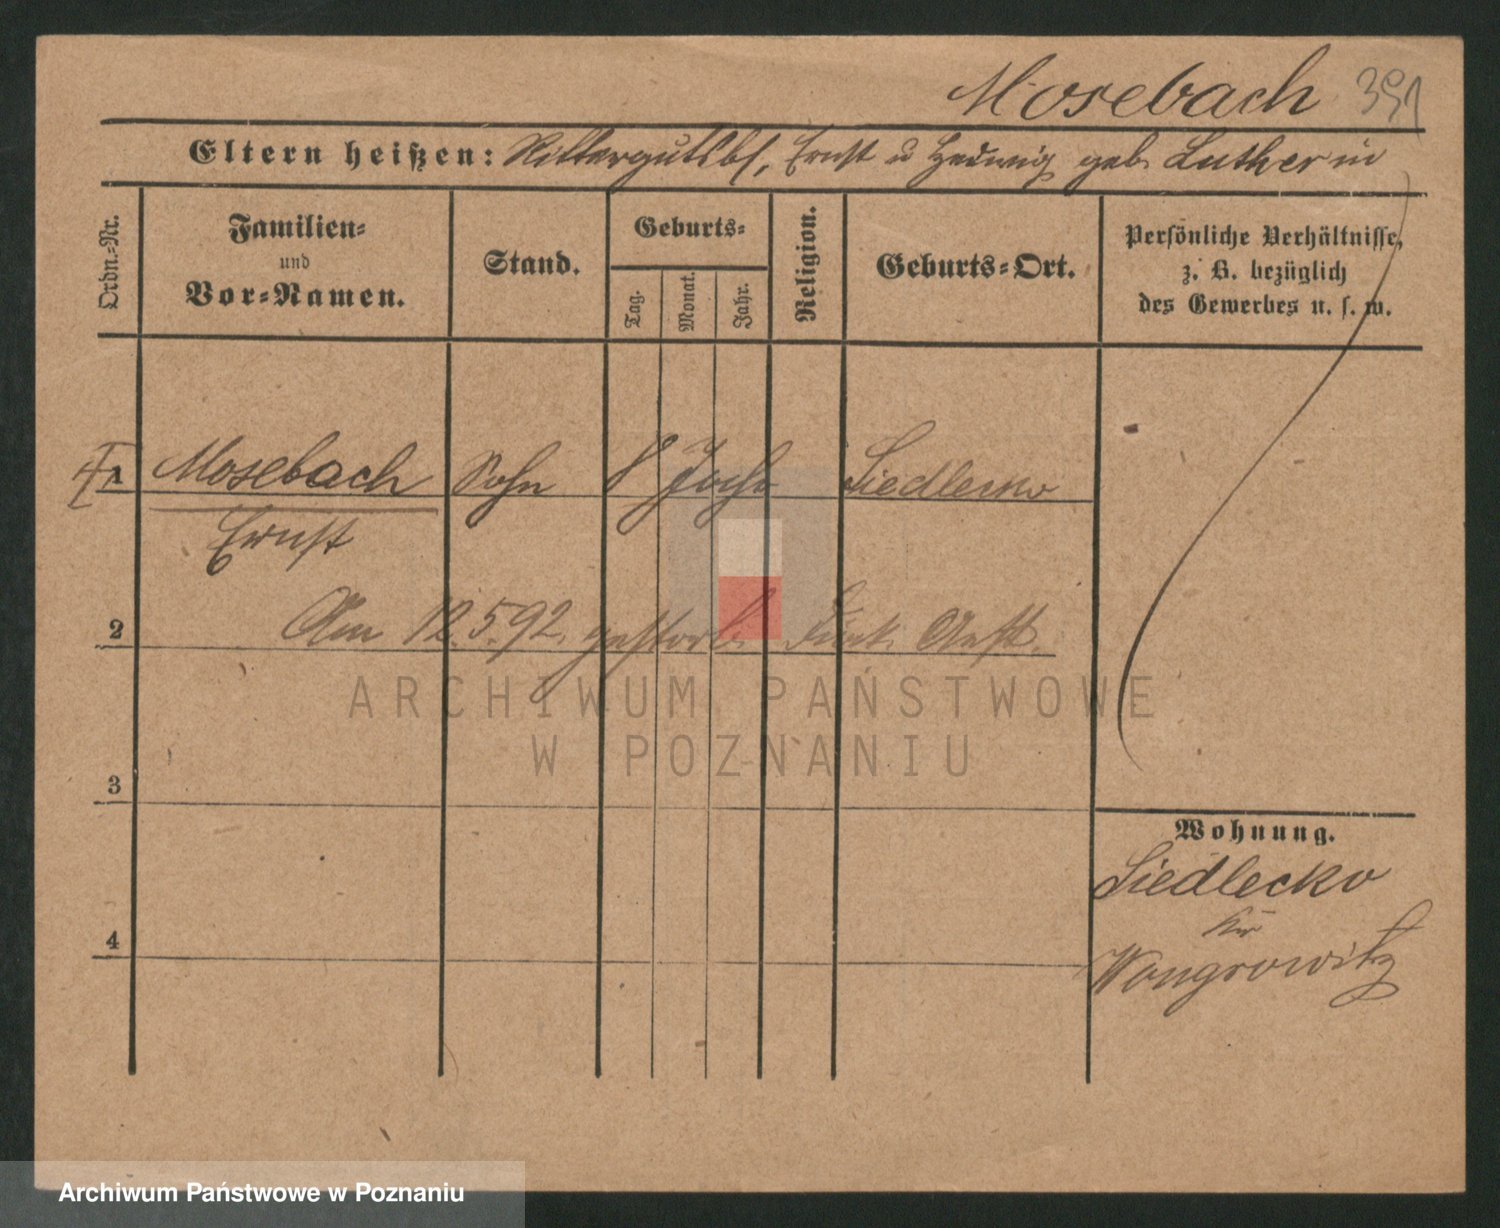 Mosebach 391
Eltern heißen: Rittergutsbs, Ernst u Hedwig geb. Luther in
Ordn.-Nr.
Familien-
und
Vor-Namen.
Stand.
Geburts-
Tag.
Monat.
Jahr.
Religion.
Geburts-Ort.
Persönliche Verhältnisse,
z. B. bezüglich
des Gewerbes u. s. w.
1 Mosebach Sohn 8 Siedlecko
Ernst
2 Am 12.5.92. gestorb.
ARCHIWUM PAŃSTWOWE
W POZNANIU
3
Wohnung.
Siedlecko
Kr
4
Wongrowitz
Archiwum Państwowe w Poznaniu